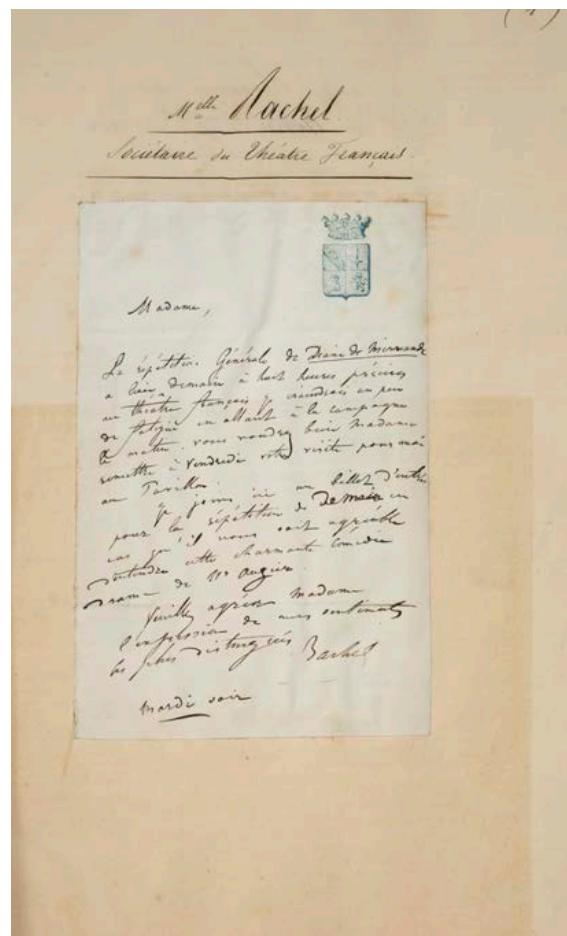 Melle Rachel
Sociétaire du Théatre Français.
Madame,
La répétition Générale de Diane de Mirmande
a lieu demain à huit heures précises
au théatre français je craindrais un peu
de fatigue en allant à la campagne
le matin. vous voudrez bien Madame
remettre à Vendredi votre visite pour moi
au Pavillon.
Je joins ici un billet d'entrée
pour la répétition de Demain en
cas qu'il vous soit agréable
d'entendre cette charmante comédie
Drame de Mr Augier.
Veuillez agréer Madame
l'expression de mes sentiments
les plus distingués
Rachel
mardi soir